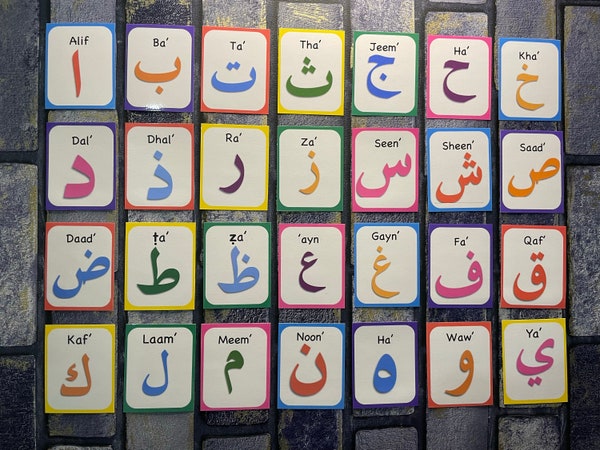 Alif Ba’ Ta’ Tha’ Jeem’ Ha’ Kha’
ا ب ت ث ج ح خ
Dal’ Dhal’ Ra’ Za’ Seen’ Sheen’ Saad’
د ذ ر ز س ش ص
Daad’ ṭa’ ẓa’ ’ayn Gayn’ Fa’ Qaf’
ض ط ظ ع غ ف ق
Kaf’ Laam’ Meem’ Noon’ Ha’ Waw’ Ya’
ك ل م ن ه و ي